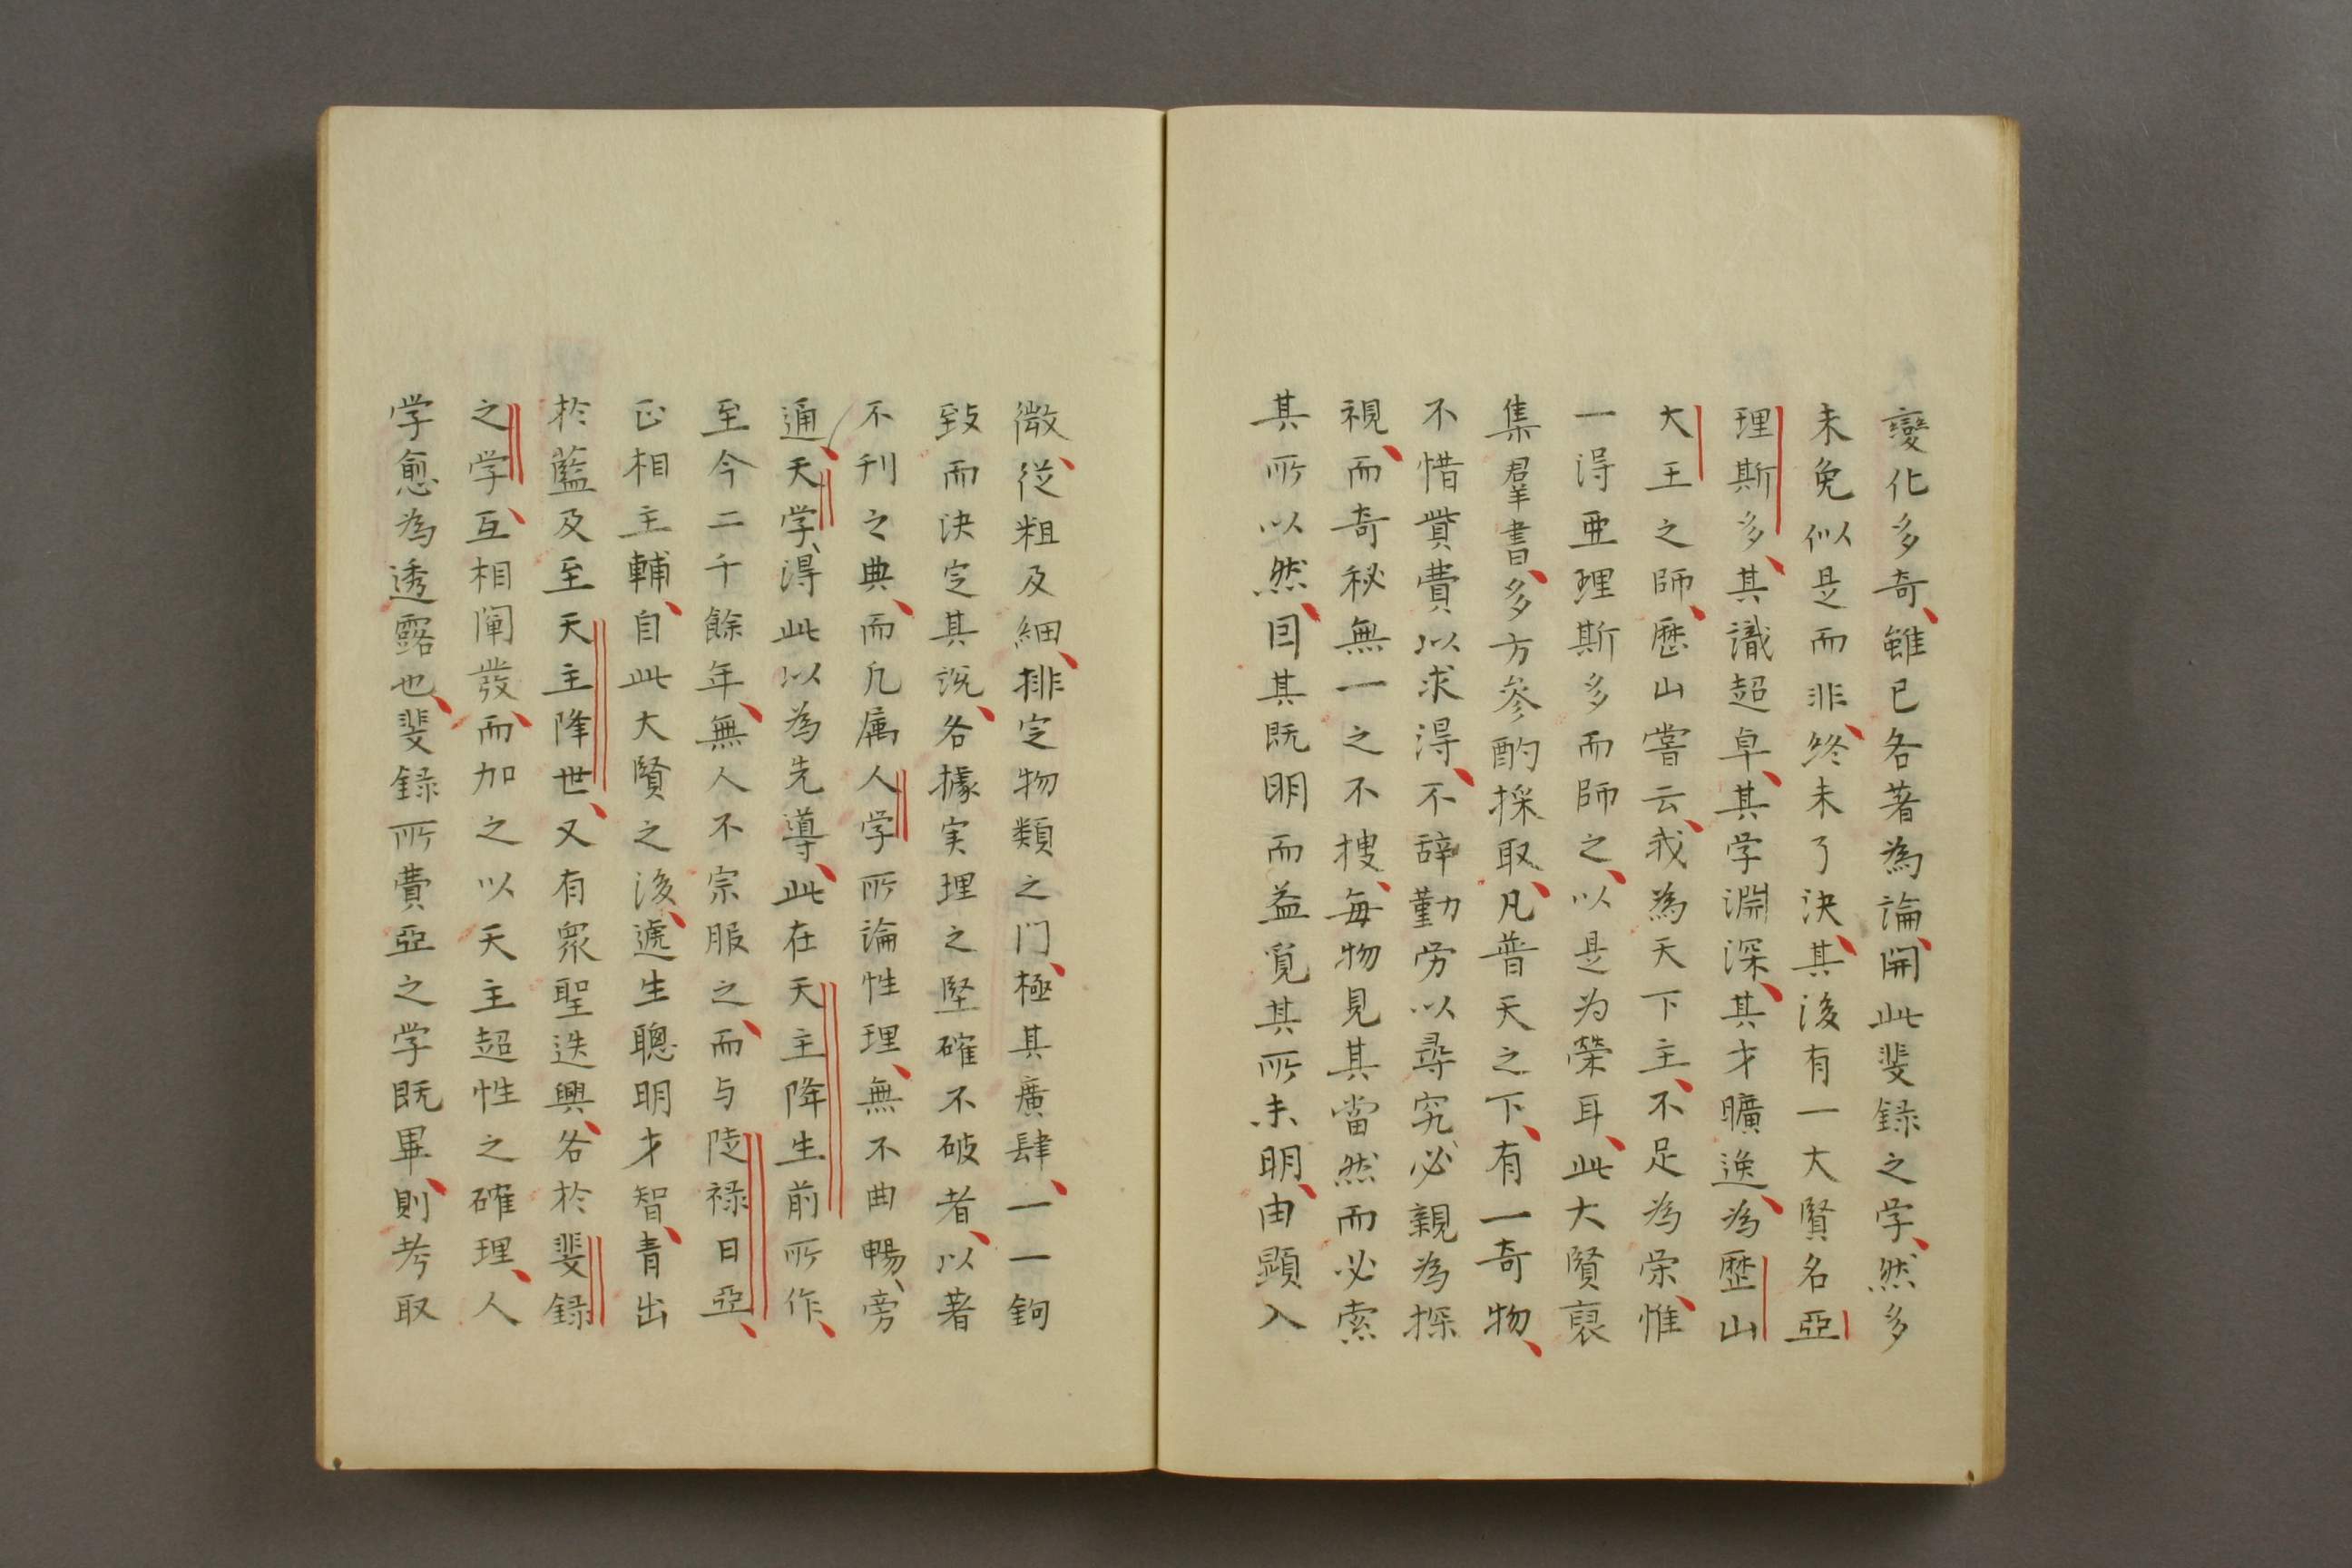 變化多奇、雖已各著為論、開此斐録之学、然多
未免似是而非、終未了決、其後有一大賢名亞
理斯多、其識超卓、其学淵深、其才曠逸、為歷山
大王之師、歷山嘗云、我為天下主、不足為荣、惟
一得亜理斯多而師之、以是为榮耳、此大賢裒
集羣書、多方參酌採取、凡普天之下、有一奇物、
不惜貲費以求得、不辞勤劳以尋究、必親為探
視、而奇秘無一之不搜、每物見其當然而必索
其所以然、因其既明而益覓其所未明、由顕入
微、從粗及細、排定物類之门、極其廣肆、一一鉤
致而決定其説、各據実理之堅確不破者、以著
不刊之典、而凡属人学所論性理、無不曲暢、旁
通、天学、得此以為先導、此在天主降生前所作、
至今二千餘年、無人不宗服之、而与陡禄日亞、
正相主輔、自此大賢之後、遞生聰明才智、青出
於藍及至天主降世、又有衆聖迭興、各於斐録
之学、互相闡發、而加之以天主超性之確理、人
学愈為透露也、斐録所費亞之学既畢、則考取